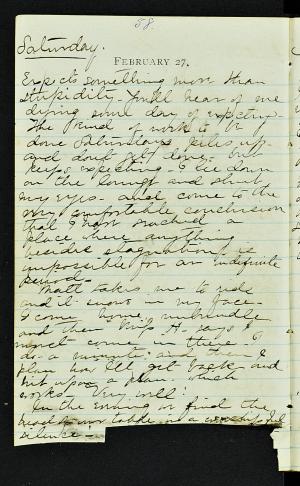 58.
Saturday.
FEBRUARY 27.
Expects something more than
stupidity. You'll hear of me
dying some day of expecting.
The kind of work to be
done Saturdays piles up
and don't get done. but
keeps expecting. I lie down
on the lounge and shut
my eyes. and come to the
very comfortable conclusion
that I have reached a
place where anything
besides stagnation is
impossible for an indefinite
period.
Matt takes me to ride
and it snows in my face.
I come home, unbundle
and then Miss H. says I
must come in there to
do a minute; and then I
plan how I'll get back and
hit upon a plan. which
works "very well."
In the evening we find the
head of our table in a
silence